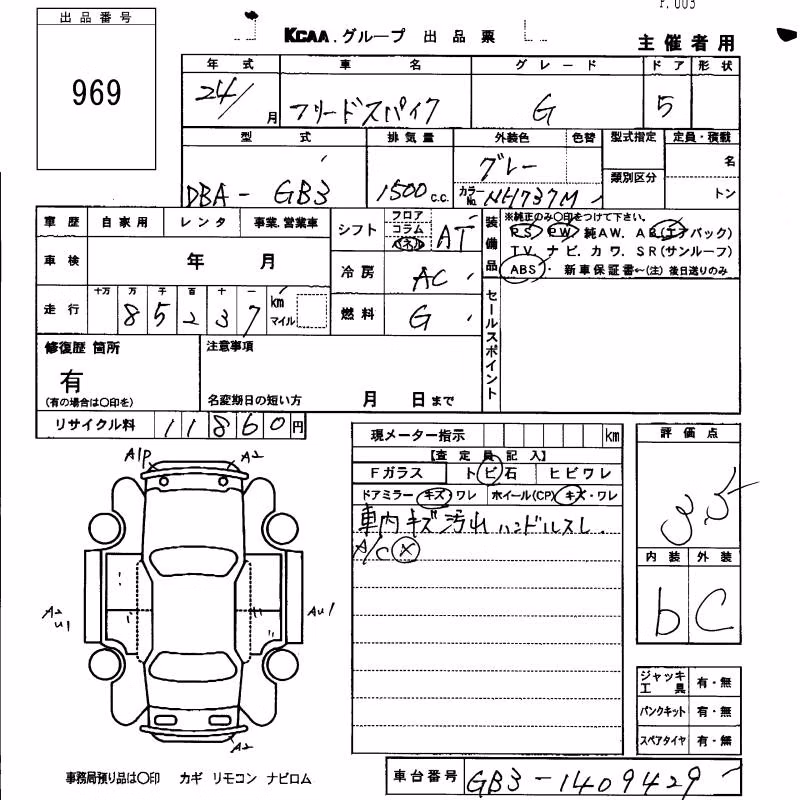 P. 003
出品番号
969
KCAA.グループ 出品票
主催者用
年式 車名 グレード ドア 形状
24/ 月 フリードスパイク G 5
型式 排気量 外装色 色替 型式指定 定員・積載
DBA- GB3 1500 c.c. グレー 類別区分 名
カラーNo. NH737M トン
車歴 自家用 レンタ 事業.営業車
車検 年 月
走行 十万 万 千 百 十 一
8 5 2 3 7 km マイル
シフト フロア コラム パネル AT
冷房 AC
燃料 G
装備品
※純正のみ〇印をつけて下さい。
PS PW 純AW. AB(エアバック)
TV. ナビ. カワ. SR(サンルーフ)
ABS・ 新車保証書←(注)後日送りのみ
セールスポイント
修復歴 箇所
有
(有の場合は〇印を)
注意事項
名変期日の短い方 月 日まで
リサイクル料 11860円
現メーター指示 km
【査定員記入】
Fガラス トビ石 ヒビワレ
ドアミラー キズ・ワレ ホイール(CP) キズ・ワレ
車内キズ汚れ ハンドルスレ.
A/C ×
評価点
3.5
内装 外装
b C
ジャッキ工具 有・無
パンクキット 有・無
スペアタイヤ 有・無
A1P A2
A2 U1
AU1
A2
事務局預り品は〇印 カギ リモコン ナビロム
車台番号 GB3-1409429